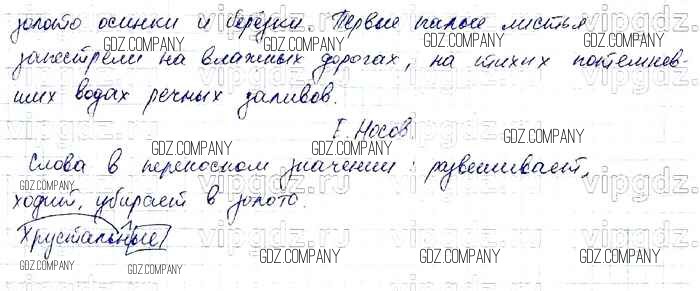 золото осинки и берёзки. Первые палые листья
запестрели на влажных дорогах, на тихих потемнев-
ших водах речных заливов.
Г. Носов.
Слова в переносном значении: развешивает,
ходит, убирает в золото.
Хрустальные